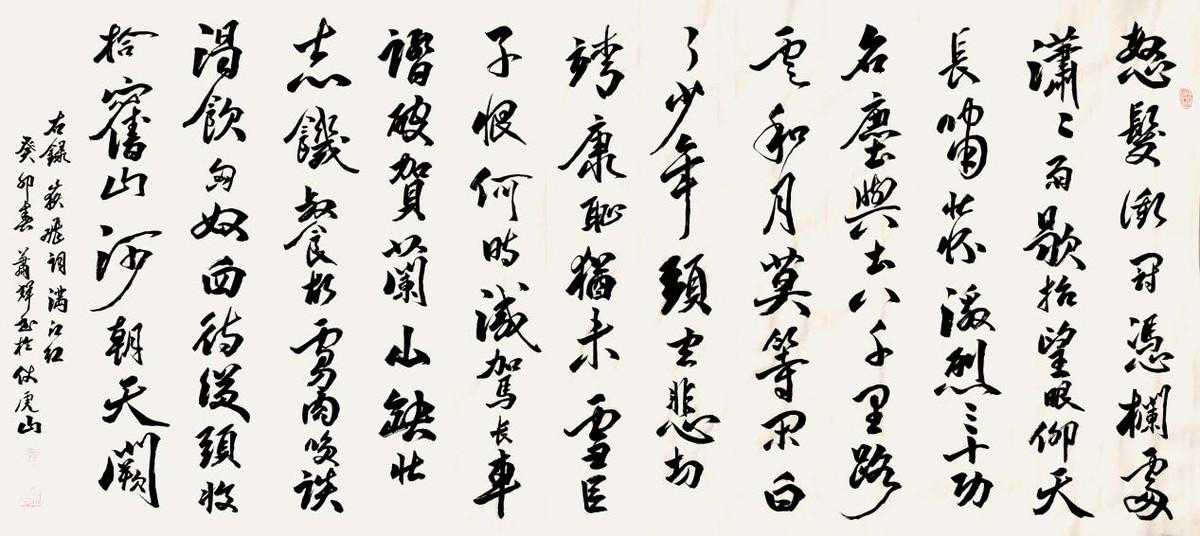 怒髮衝冠憑欄處
瀟〻雨歇抬望眼仰天
長嘯壯懷激烈三十功
名塵與土八千里路
雲和月莫等閑白
了少年頭空悲切
靖康恥猶未雪臣
子恨何時滅駕長車
踏破賀蘭山缺壯
志饑餐胡虜肉笑談
渴飲匈奴血待從頭收
拾舊山河朝天闕
右錄嶽飛詞滿江紅
癸卯春蕭輝書於伏虎山